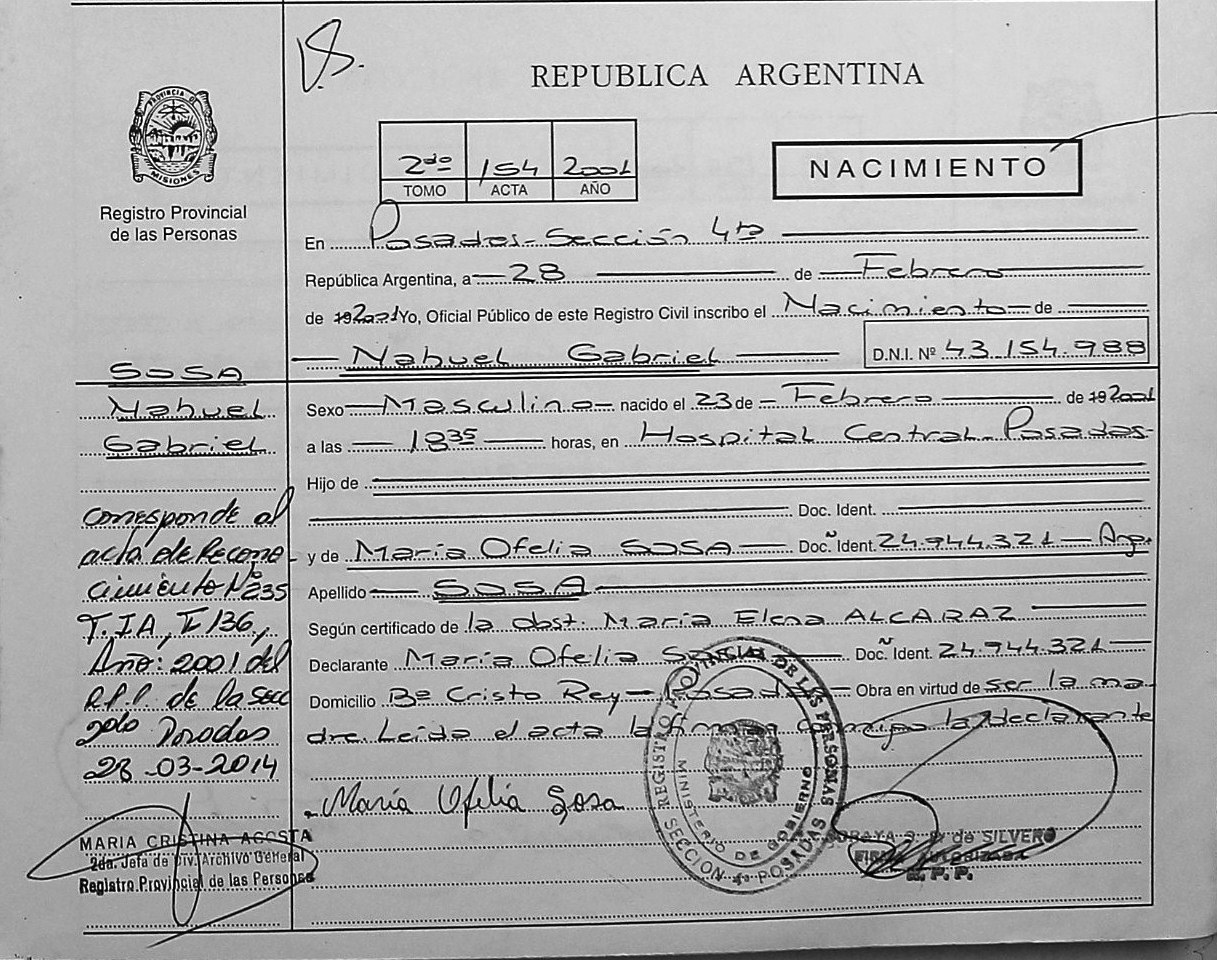 REPUBLICA ARGENTINA
PROVINCIA D
MISIONES
Registro Provincial
de las Personas
2do 154 2001
TOMO ACTA AÑO
NACIMIENTO
En Posadas - Sección 4ta
República Argentina, a 28 de Febrero
de 192001 Yo, Oficial Público de este Registro Civil inscribo el Nacimiento de
Nahuel Gabriel D.N.I. Nº 43.154.988
Sexo Masculino nacido el 23 de Febrero de 192001
a las 18 35 horas, en Hospital Central - Posadas-
Hijo de
Doc. Ident.
y de María Ofelia SOSA Doc. Ident. 24.944.321 - Arg.
Apellido SOSA
Según certificado de la obst. María Elena ALCARAZ
Declarante María Ofelia Doc. Ident. 24.944.321
Domicilio Bº Cristo Rey - Posadas - Obra en virtud de ser la ma
dre. Leída el acta la firman conmigo la declarante
María Ofelia Sosa
REGISTRO PROVINCIAL DE LAS PERSONAS
MINISTERIO DE GOBIERNO
SECCION 4ª POSADAS
de SILVERO
FIRMA AUTORIZADA
R. P. P.
SOSA
Nahuel
Gabriel
Corresponde al
acta de Recono-
cimiento Nº235
T. IA, Fº 136,
Año: 2001 del
R.P.P. de la secc
2da Posadas
28-03-2014
MARIA CRISTINA ACOSTA
2da. Jefa de Div. Archivo General
Registro Provincial de las Personas